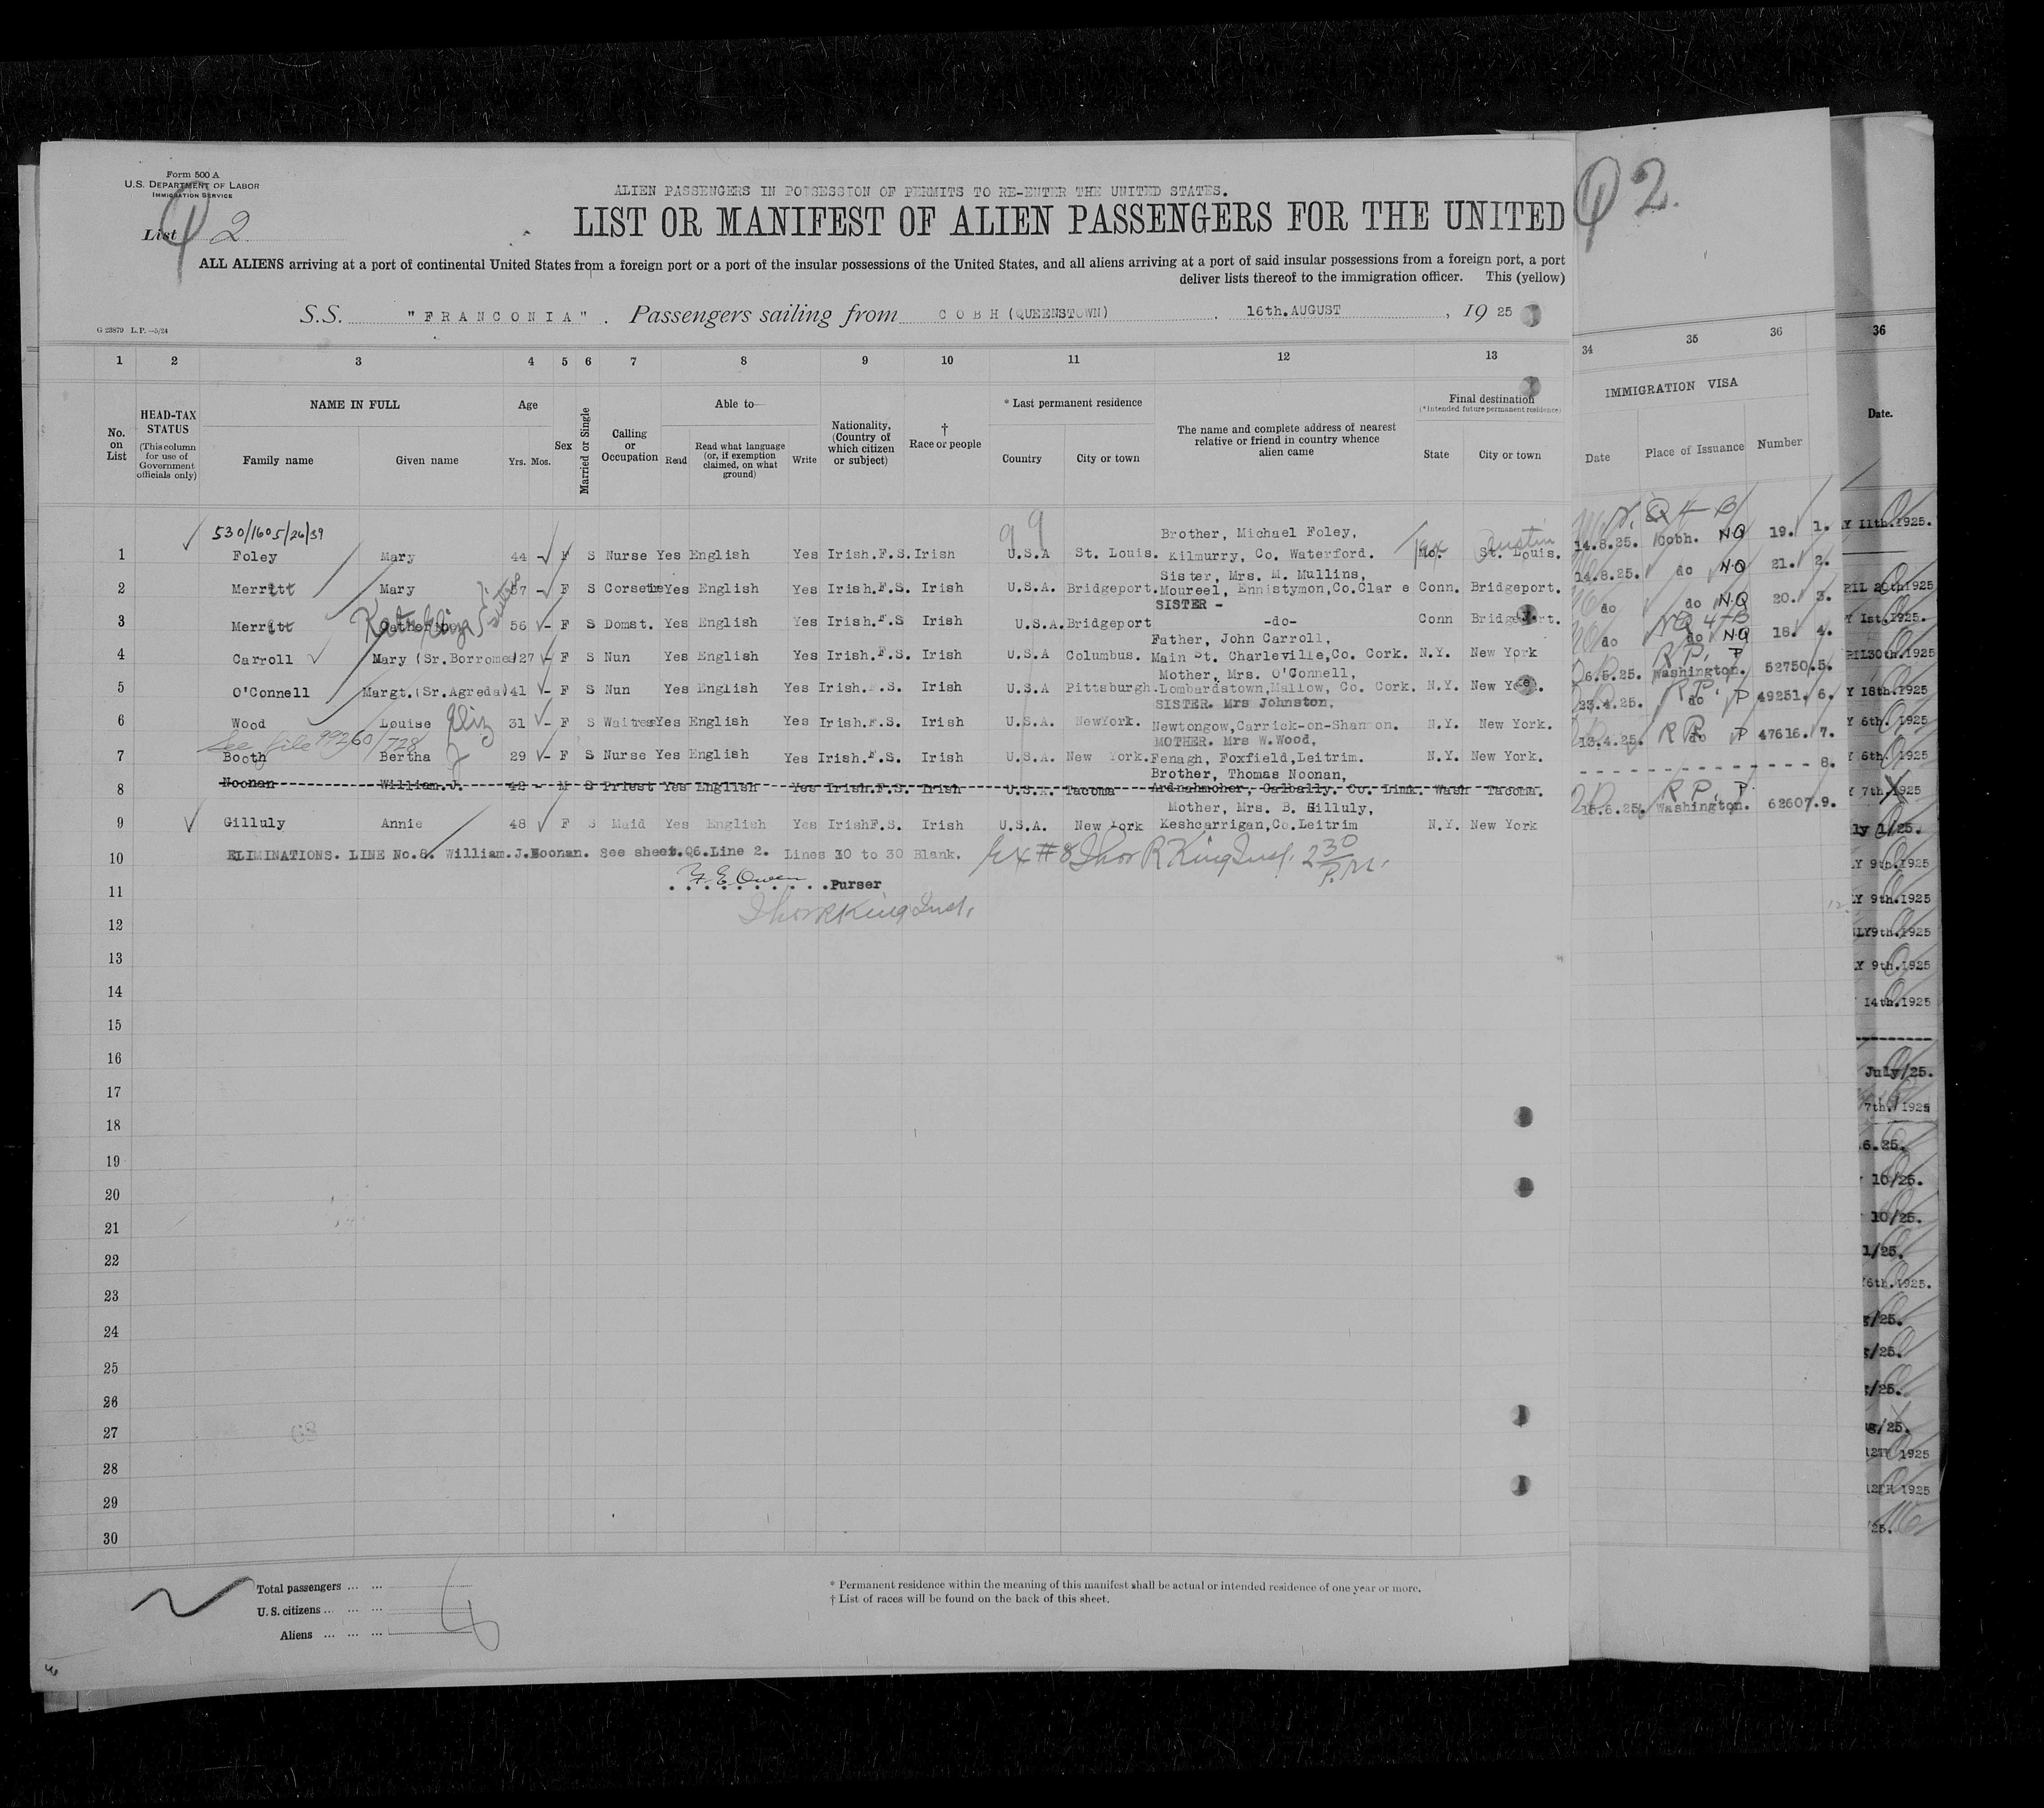 Form 500 A
U.S. DEPARTMENT OF LABOR
IMMIGRATION SERVICE
List 2
Q 2.
ALIEN PASSENGERS IN POSSESSION OF PERMITS TO RE-ENTER THE UNITED STATES.
LIST OR MANIFEST OF ALIEN PASSENGERS FOR THE UNITED
ALL ALIENS arriving at a port of continental United States from a foreign port or a port of the insular possessions of the United States, and all aliens arriving at a port of said insular possessions from a foreign port, a port
deliver lists thereof to the immigration officer. This (yellow)
S.S. "FRANCONIA". Passengers sailing from COBH (QUEENSTOWN). 16th.AUGUST, 19 25
G 23879 L.P.—5/24
1 2 3 4 5 6 7 8 9 10 11 12 13 34 35 36 36
No. on List
HEAD-TAX STATUS (This column for use of Government officials only)
NAME IN FULL Family name Given name
Age Yrs. Mos.
Sex
Married or Single
Calling or Occupation
Able to— Read Read what language (or, if exemption claimed, on what ground) Write
Nationality, (Country of which citizen or subject)
† Race or people
* Last permanent residence Country City or town
The name and complete address of nearest relative or friend in country whence alien came
Final destination (*Intended future permanent residence) State City or town
IMMIGRATION VISA Date Place of Issuance Number
Date.
530/160 5/26/39
99
Brother, Michael Foley,
1 Foley Mary 44 - F S Nurse Yes English Yes Irish.F.S. Irish U.S.A St. Louis. Kilmurry, Co. Waterford. Mo. St. Louis. Austin 14.8.25. Cobh. NQ 19. 1.
Sister, Mrs. M. Mullins,
2 Merritt Mary 37 - F S Corsetie Yes English Yes Irish.F.S. Irish U.S.A. Bridgeport. Moureel, Ennistymon,Co.Clar e Conn. Bridgeport. 14.8.25. do NQ 21. 2.
SISTER -
3 Merritt Catherine Kate Eliza 56 - F S Domst. Yes English Yes Irish.F.S Irish U.S.A. Bridgeport -do- Conn Bridgeport. do do NQ 20. 3.
Father, John Carroll,
4 Carroll Mary (Sr.Borromeo) 27 - F S Nun Yes English Yes Irish.F.S. Irish U.S.A Columbus. Main St. Charleville,Co. Cork. N.Y. New York do do NQ 18. 4.
Mother, Mrs. O'Connell,
5 O'Connell Margt.(Sr.Agreda) 41 - F S Nun Yes English Yes Irish.F.S. Irish U.S.A Pittsburgh. Lombardstown,Mallow, Co. Cork. N.Y. New York. 6.5.25. Washington. P 52750. 5.
SISTER. Mrs Johnston,
6 Wood Louise Eliz 31 - F S Waitress Yes English Yes Irish.F.S. Irish U.S.A. NewYork. Newtongow,Carrick-on-Shannon. N.Y. New York. 23.4.25. do P 49251. 6.
See file 99260/728
MOTHER. Mrs W.Wood,
7 Booth Bertha J 29 - F S Nurse Yes English Yes Irish.F.S. Irish U.S.A. New York. Fenagh, Foxfield,Leitrim. N.Y. New York. 13.4.25. do P 47616. 7.
Brother, Thomas Noonan,
8 Noonan William.J. 42 - M S Priest Yes English Yes Irish.F.S. Irish U.S.A. Tacoma Ardnahmoher, Galbally. Co. Limk. Wash Tacoma. 8.
Mother, Mrs. B. Gilluly,
9 Gilluly Annie 48 F S Maid Yes English Yes IrishF.S. Irish U.S.A. New York Keshcarrigan,Co.Leitrim N.Y. New York 15.6.25. Washington. P 62607. 9.
10 ELIMINATIONS. LINE No.8. William.J.Noonan. See sheet.Q6.Line 2. Lines 10 to 30 Blank. Ex #8 Thos R King Insp. 2 30 P.M.
11 F. E. Owen Purser
Thos R King Insp.
12
13
14
15
16
17
18
19
20
21
22
23
24
25
26
27
28
29
30
Total passengers ... ...
U.S. citizens ... ... ...
Aliens ... ... ...
* Permanent residence within the meaning of this manifest shall be actual or intended residence of one year or more.
† List of races will be found on the back of this sheet.
Y 11th.1925.
RIL 20th1925
Y 1st.1925.
RIL30th.1925
Y 18th.1925
Y 6th. 1925
Y 6th. 1925
Y 7th.1925
ly 1/25.
Y 9th.1925
Y 9th.1925
LY9th.1925
Y 9th.1925
14th.1925
July/25.
7th./1925
6.25.
10/25.
10/25.
1/25.
6th.1925.
g/25.
g/25.
g/25.
ug/25.
12TH 1925
12TH 1925
/25.